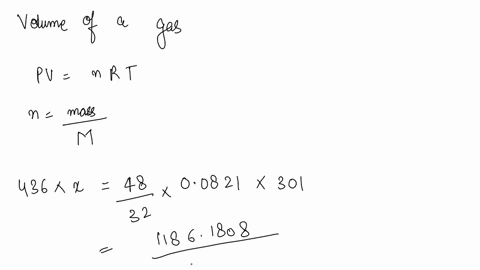 Volume of a gas
PV = nRT
n = mass / M
436 × x = 48 / 32 × 0.0821 × 301
= 1186.1808